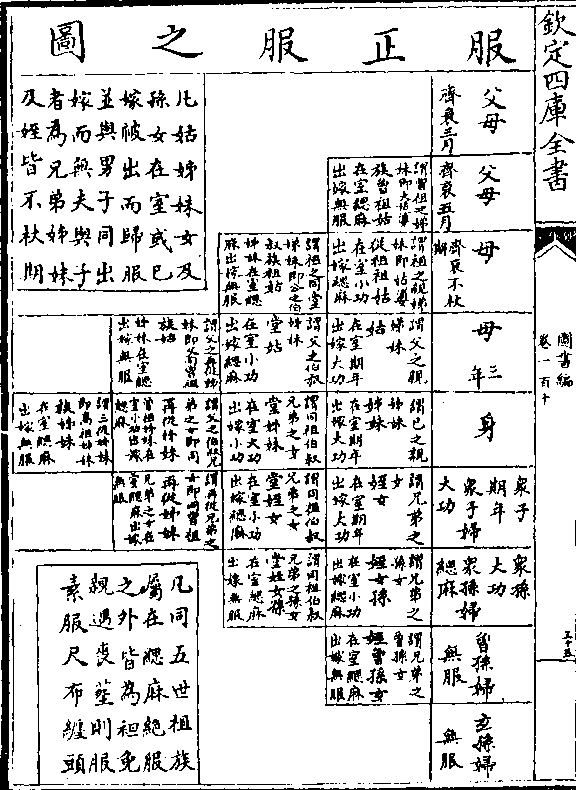 欽定四庫全書
圖書編
卷一百十
服正服之圖
父母
齊衰三月
父母
齊衰五月
謂曾祖之姊
妹即
族曾祖姑
在室緦麻
出嫁無服
母
齊衰不杖
期
謂祖之親姊
妹即
從祖祖姑
在室小功
出嫁緦麻
謂祖之同堂
姊妹即
族祖姑
在室緦
麻出嫁無服
母
三年
謂父之親
姊妹
姑
在室期年
出嫁大功
謂父之伯叔
姊妹
堂姑
在室小功
出嫁緦麻
族姑
在室緦
出嫁無服
身
謂己之親
姊妹
姊妹
在室期年
出嫁大功
謂同祖伯叔
兄弟之女
堂姊妹
在室大功
出嫁小功
再從姊妹
緦麻
謂三從姊妹
族姊妹
在室緦麻
出嫁無服
衆子
期年
衆子婦
大功
謂兄弟之
女
姪女
在室期年
出嫁大功
謂同祖伯叔
兄弟之女
堂姪女
在室小功
出嫁緦麻
無服
衆孫
大功
衆孫婦
緦麻
謂兄弟之
孫女
姪女孫
在室小功
出嫁緦麻
謂同祖伯叔
兄弟之孫女
堂姪女孫
在室緦麻
出嫁無服
曾孫婦
無服
謂兄弟之
曾孫女
姪曾孫女
在室緦麻
出嫁無服
玄孫婦
無服
凡姑姊妹女及
孫女在室或已
嫁被出而歸服
並與男子同出
嫁而無夫與子
者為兄弟姊妹
及姪皆不杖期
凡同五世祖族
屬在緦麻絕服
之外皆為袒免
親遇喪葬則服
素服尺布纏頭